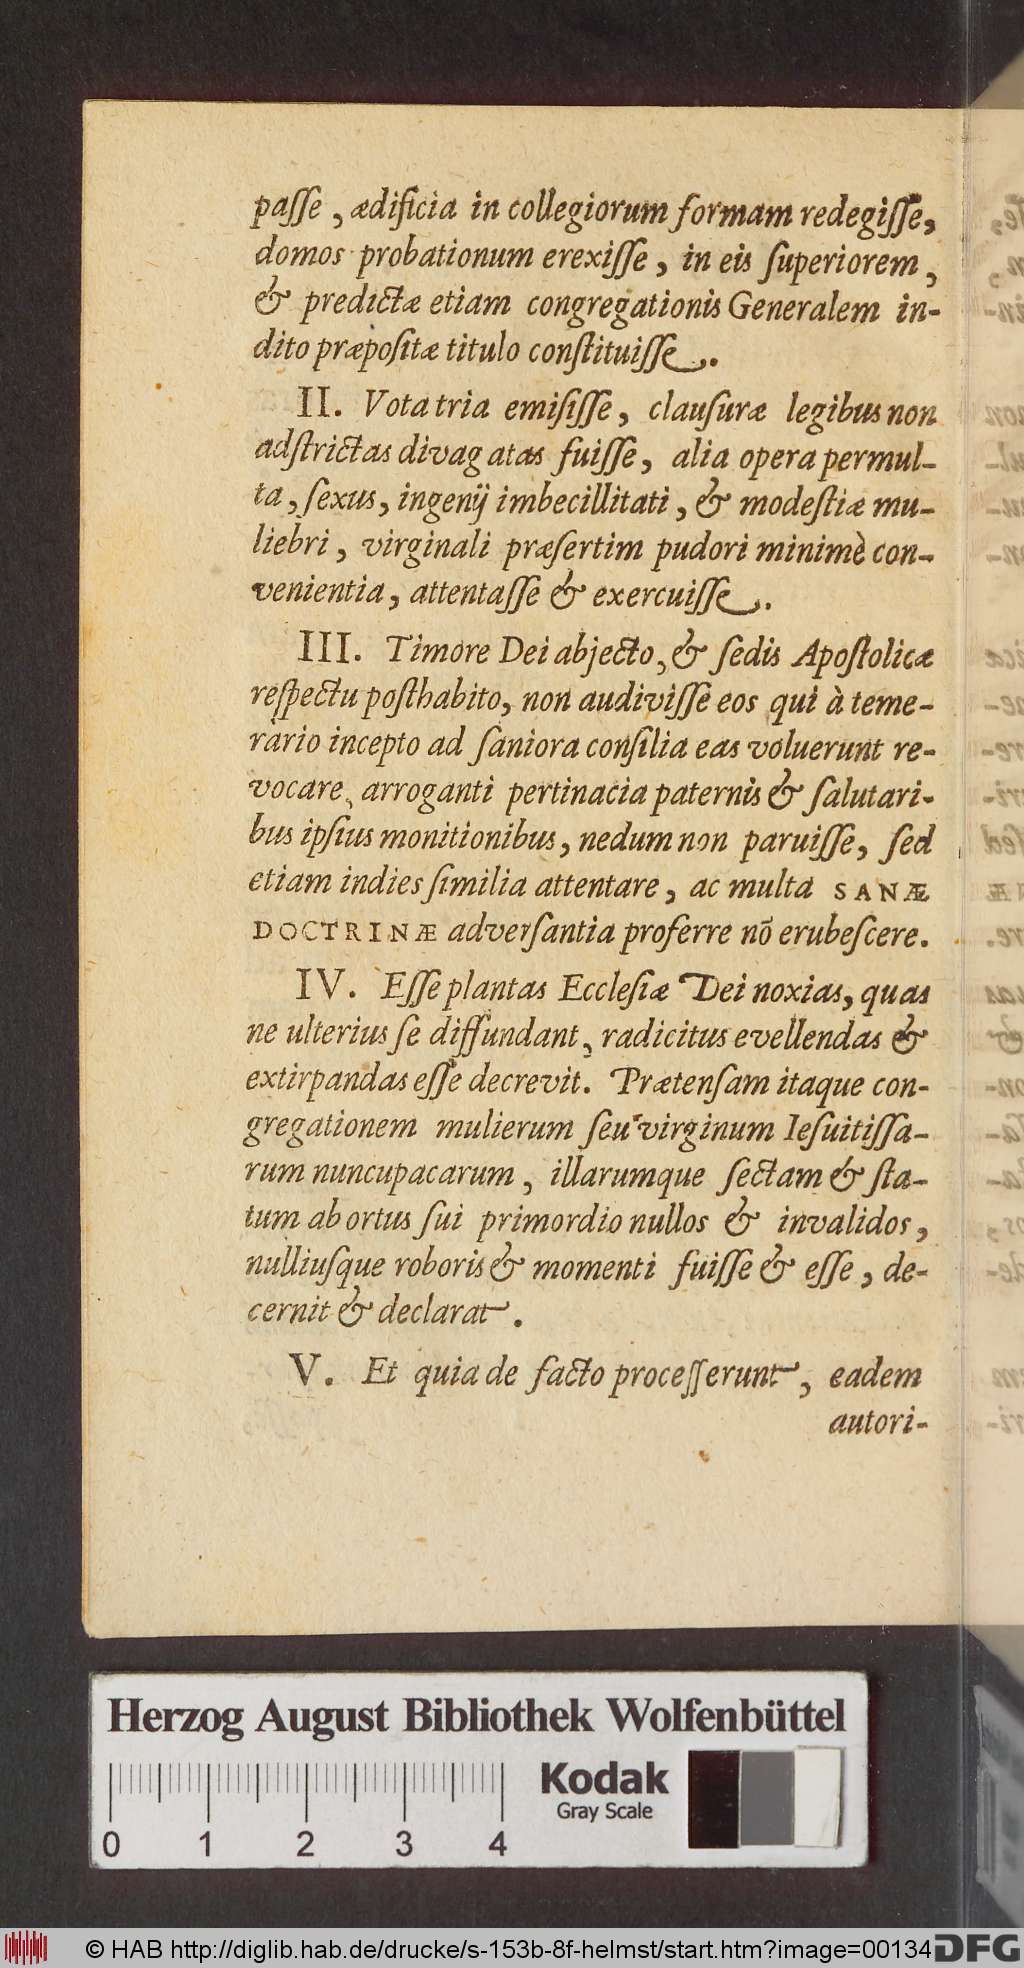 paſſe, ædificia in collegiorum formam redegiſſe,
domos probationum erexiſſe, in eis ſuperiorem,
& predictæ etiam congregationis Generalem in-
dito præpoſitæ titulo conſtituiſſe.
II. Vota tria emiſiſſe, clauſuræ legibus non
adſtrictas divagatas fuiſſe, alia opera permul-
ta, ſexus, ingenij imbecillitati, & modeſtiæ mu-
liebri, virginali præſertim pudori minimè con-
venientia, attentaſſe & exercuiſſe.
III. Timore Dei abjecto, & ſedis Apoſtolicæ
reſpectu poſthabito, non audiviſſe eos qui à teme-
rario incepto ad ſaniora conſilia eas voluerunt re-
vocare, arroganti pertinacia paternis & ſalutari-
bus ipſius monitionibus, nedum non paruiſſe, ſed
etiam indies ſimilia attentare, ac multa SANÆ
DOCTRINÆ adverſantia proferre nō erubeſcere.
IV. Eſſe plantas Eccleſiæ Dei noxias, quas
ne ulterius ſe diffundant, radicitus evellendas &
extirpandas eſſe decrevit. Prætenſam itaque con-
gregationem mulierum ſeu virginum Ieſuitiſſa-
rum nuncupacarum, illarumque ſectam & ſta-
tum ab ortus ſui primordio nullos & invalidos,
nulliuſque roboris & momenti fuiſſe & eſſe, de-
cernit & declarat.
V. Et quia de facto proceſſerunt, eadem
autori-
Herzog August Bibliothek Wolfenbüttel
Kodak
Gray Scale
0 1 2 3 4
© HAB http://diglib.hab.de/drucke/s-153b-8f-helmst/start.htm?image=00134
DFG